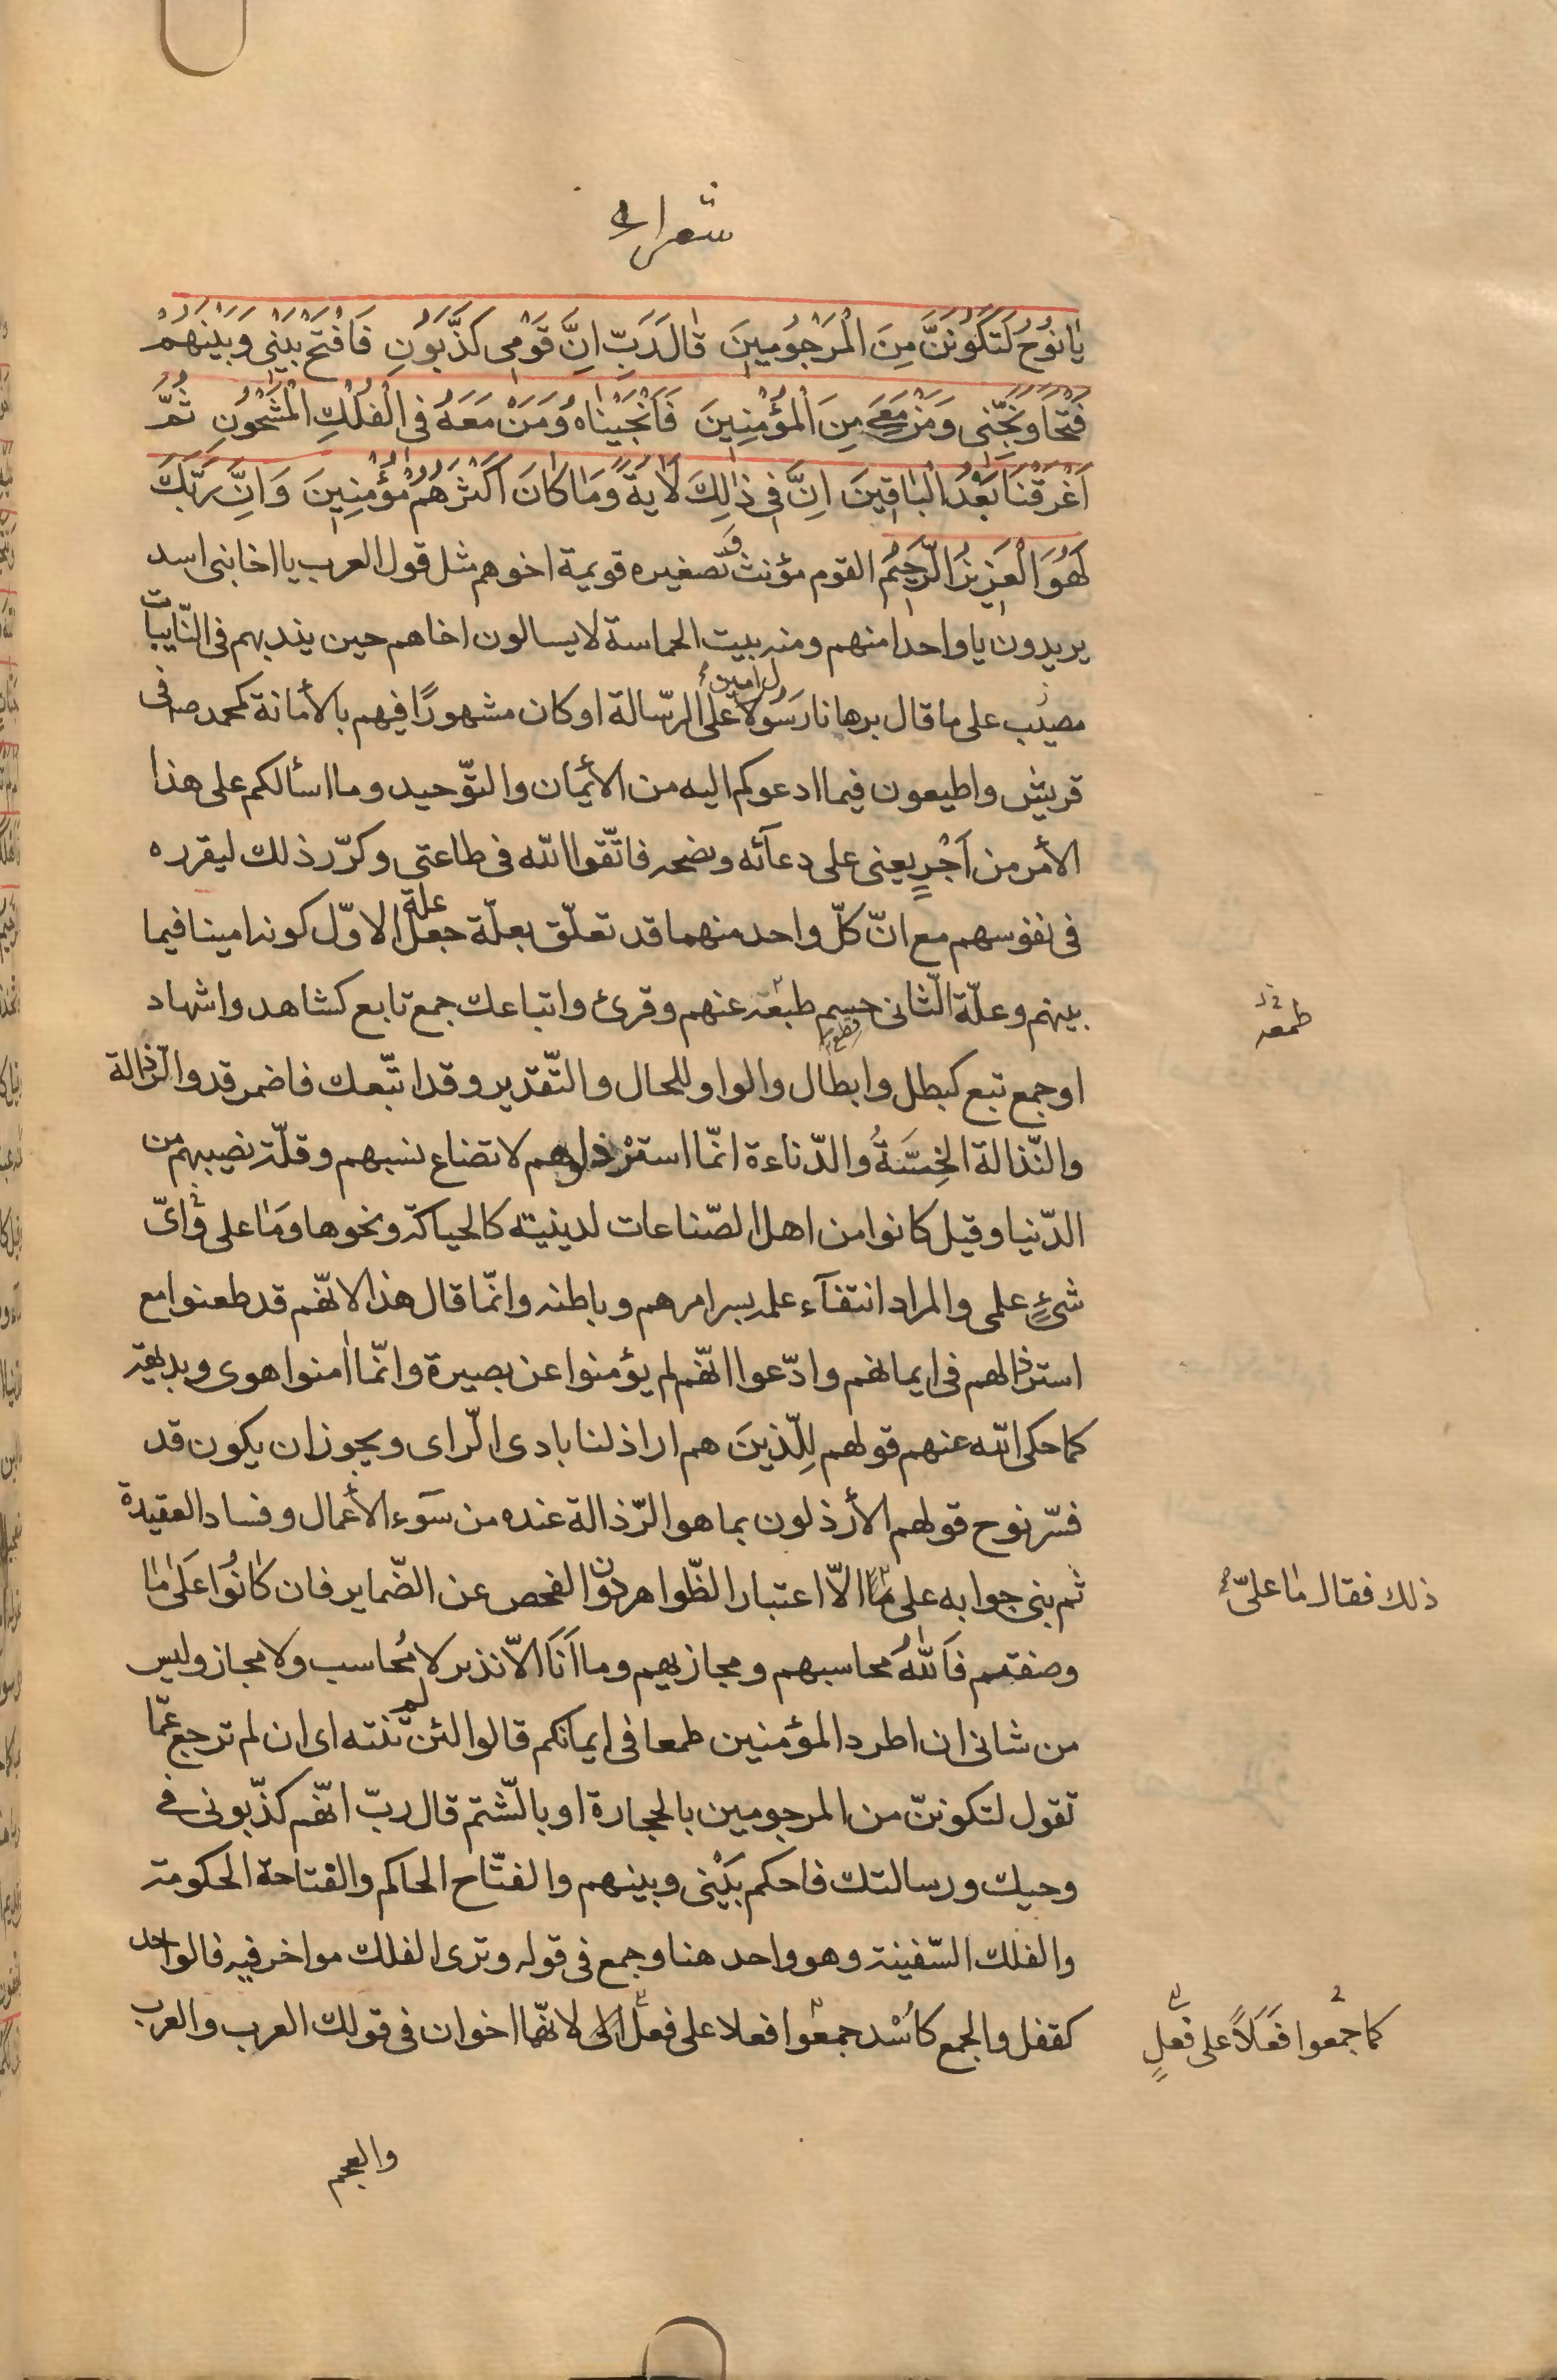 شعراء
يَا نُوحُ لَتَكُونَنَّ مِنَ الْمَرْجُومِينَ قَالَ رَبِّ اِنَّ قَوْمِى كَذَّبُونِ فَافْتَحْ بَيْنِى وَبَيْنَهُمْ
فَتْحًا وَنَجِّنِى وَمَنْ مَعِىَ مِنَ الْمُؤْمِنِينَ فَاَنْجَيْنَاهُ وَمَنْ مَعَهُ فِى الْفُلْكِ الْمَشْحُونِ ثُمَّ
اَغْرَقْنَا بَعْدُ الْبَاقِينَ اِنَّ فِى ذٰلِكَ لَاٰيَةً وَمَا كَانَ اَكْثَرُهُمْ مُؤْمِنِينَ وَاِنَّ رَبَّكَ
لَهُوَ الْعَزِيزُ الرَّحِيمُ القوم مؤنث وتصغيره قويمة اخوهم مثل قول العرب يا اخا بنى اسد
يريدون يا واحدا منهم ومنه بيت الحماسة لا يسالون اخاهم حين يندبهم فى النّايبات
على ما قال برهانا رسول امين على الرّسالة او كان مشهورًا فيهم بالأمانة كمحمد صم فى
قريش واطيعون فيما ادعوكم اليه من الأيمان والتّوحيد وما اسألكم على هذا
الأمر من اَجْرٍ يعنى على دعآئه ونصحه فاتّقوا الله فى طاعتى وكرّر ذلك ليقرره
فى نفوسهم مع انّ كلّ واحد منهما قد تعلّق بعلّة جعل علة الاوّل كونه امينا فيما
بينهم وعلّة الثّانى حسم طبعه عنهم وقرئ واتباعك جمع تابع كشاهد واشهاد
طمعه
او جمع تبع كبطل وابطال والواو للحال والتّقدير وقد اتّبعك فاضمر قد والرّذالة
والنّذالة الخِسَّةُ والدّناءة انّما استرذلوهم لاتضاع نسبهم وقلّة نصيبهم من
الدّنيا وقيل كانوا من اهل الصّناعات لدينيته كالحياكة ونحوها وَمَا على واىّ
شئٍ علمى والمراد انتفآء علمه بسر امرهم وباطنه وانّما قال هذا لانّهم قد طعنوا مع
استرذالهم فى ايمانهم وادّعوا انّهم لم يؤمنوا عن بصيرة وانّما اٰمنوا هوى وبديهة
كما حكى الله عنهم قولهم لِلّذينَ هم اراذلنا بادى الرّاى ويجوز ان يكون قد
فسّر نوح قولهم الأرذلون بما هو الرّذالة عنده من سَوء الأعمال وفساد العقيدة
ثم بنى جوابه على ما الاّ اعتبار الظّواهر دون الفحص عن الضّماير فان كَانُوا عَلىٰ مَا
ذلك فقال مٰا علىّ
وصفتم فَاللهُ محاسبهم ومجازيهم وما اَنَا الاّ نذير لا مُحاسب ولا مجاز وليس
من شانى ان اطرد المؤمنين طمعا فى ايمانكم قالوا لئن لم تنته اى ان لم ترجع عمّا
تقول لتكوننّ من المرجومين بالحجارة او بالشّتم قال ربّ انّهم كذّبونى فى
وحيك ورسالتك فاحكم بَيْنى وبينهم والفتّاح الحاكم والفتاحة الحكومة
والفلك السّفينة وهو واحد هنا وجمع فى قوله وترى الفلك مواخر فيه فالواحد
كقفل والجمع كاُسْد جمعوا فعلا على فعل لانّهما اخوان فى قولك العرب والعرب
كما جمعوا فَعَلاً على فعلٍ
والعجم